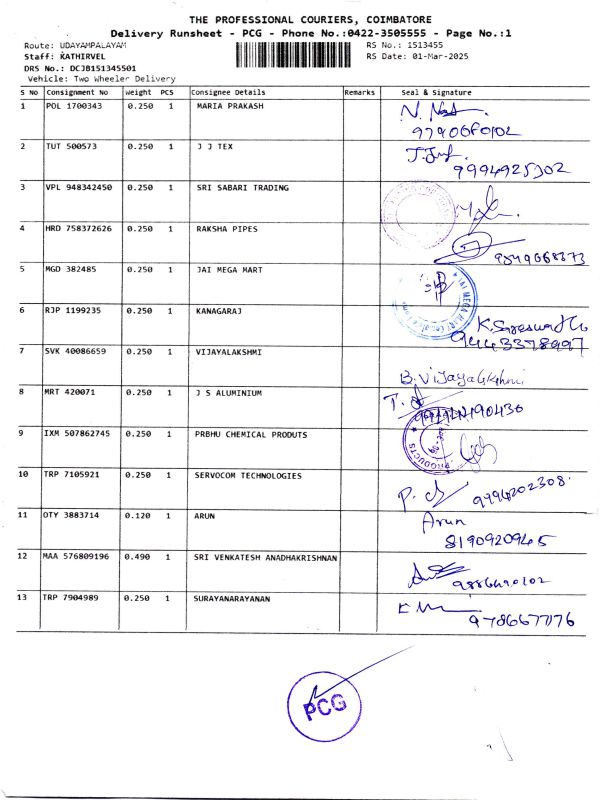 THE PROFESSIONAL COURIERS, COIMBATORE
Delivery Runsheet - PCG - Phone No.:0422-3505555 - Page No.:1
Route: UDAYAMPALAYAM RS No.: 1513455
Staff: KATHIRVEL RS Date: 01-Mar-2025
DRS No.: DCJB151345501
Vehicle: Two Wheeler Delivery
S No Consignment No Weight PCS Consignee Details Remarks Seal & Signature
1 POL 1700343 0.250 1 MARIA PRAKASH
2 TUT 500573 0.250 1 J J TEX
9994925302
3 VPL 948342450 0.250 1 SRI SABARI TRADING
4 HRD 758372626 0.250 1 RAKSHA PIPES
5 MGD 382485 0.250 1 JAI MEGA MART
JAI MEGA MART
6 RJP 1199235 0.250 1 KANAGARAJ
7 SVK 40086659 0.250 1 VIJAYALAKSHMI
B. Vijayalakshmi
8 MRT 420071 0.250 1 J S ALUMINIUM
9 IXM 507862745 0.250 1 PRBHU CHEMICAL PRODUTS
PRODUCTS
10 TRP 7105921 0.250 1 SERVOCOM TECHNOLOGIES
9994202308
11 OTY 3883714 0.120 1 ARUN
Arun
8190920945
12 MAA 576809196 0.490 1 SRI VENKATESH ANADHAKRISHNAN
13 TRP 7904989 0.250 1 SURAYANARAYANAN
PCG